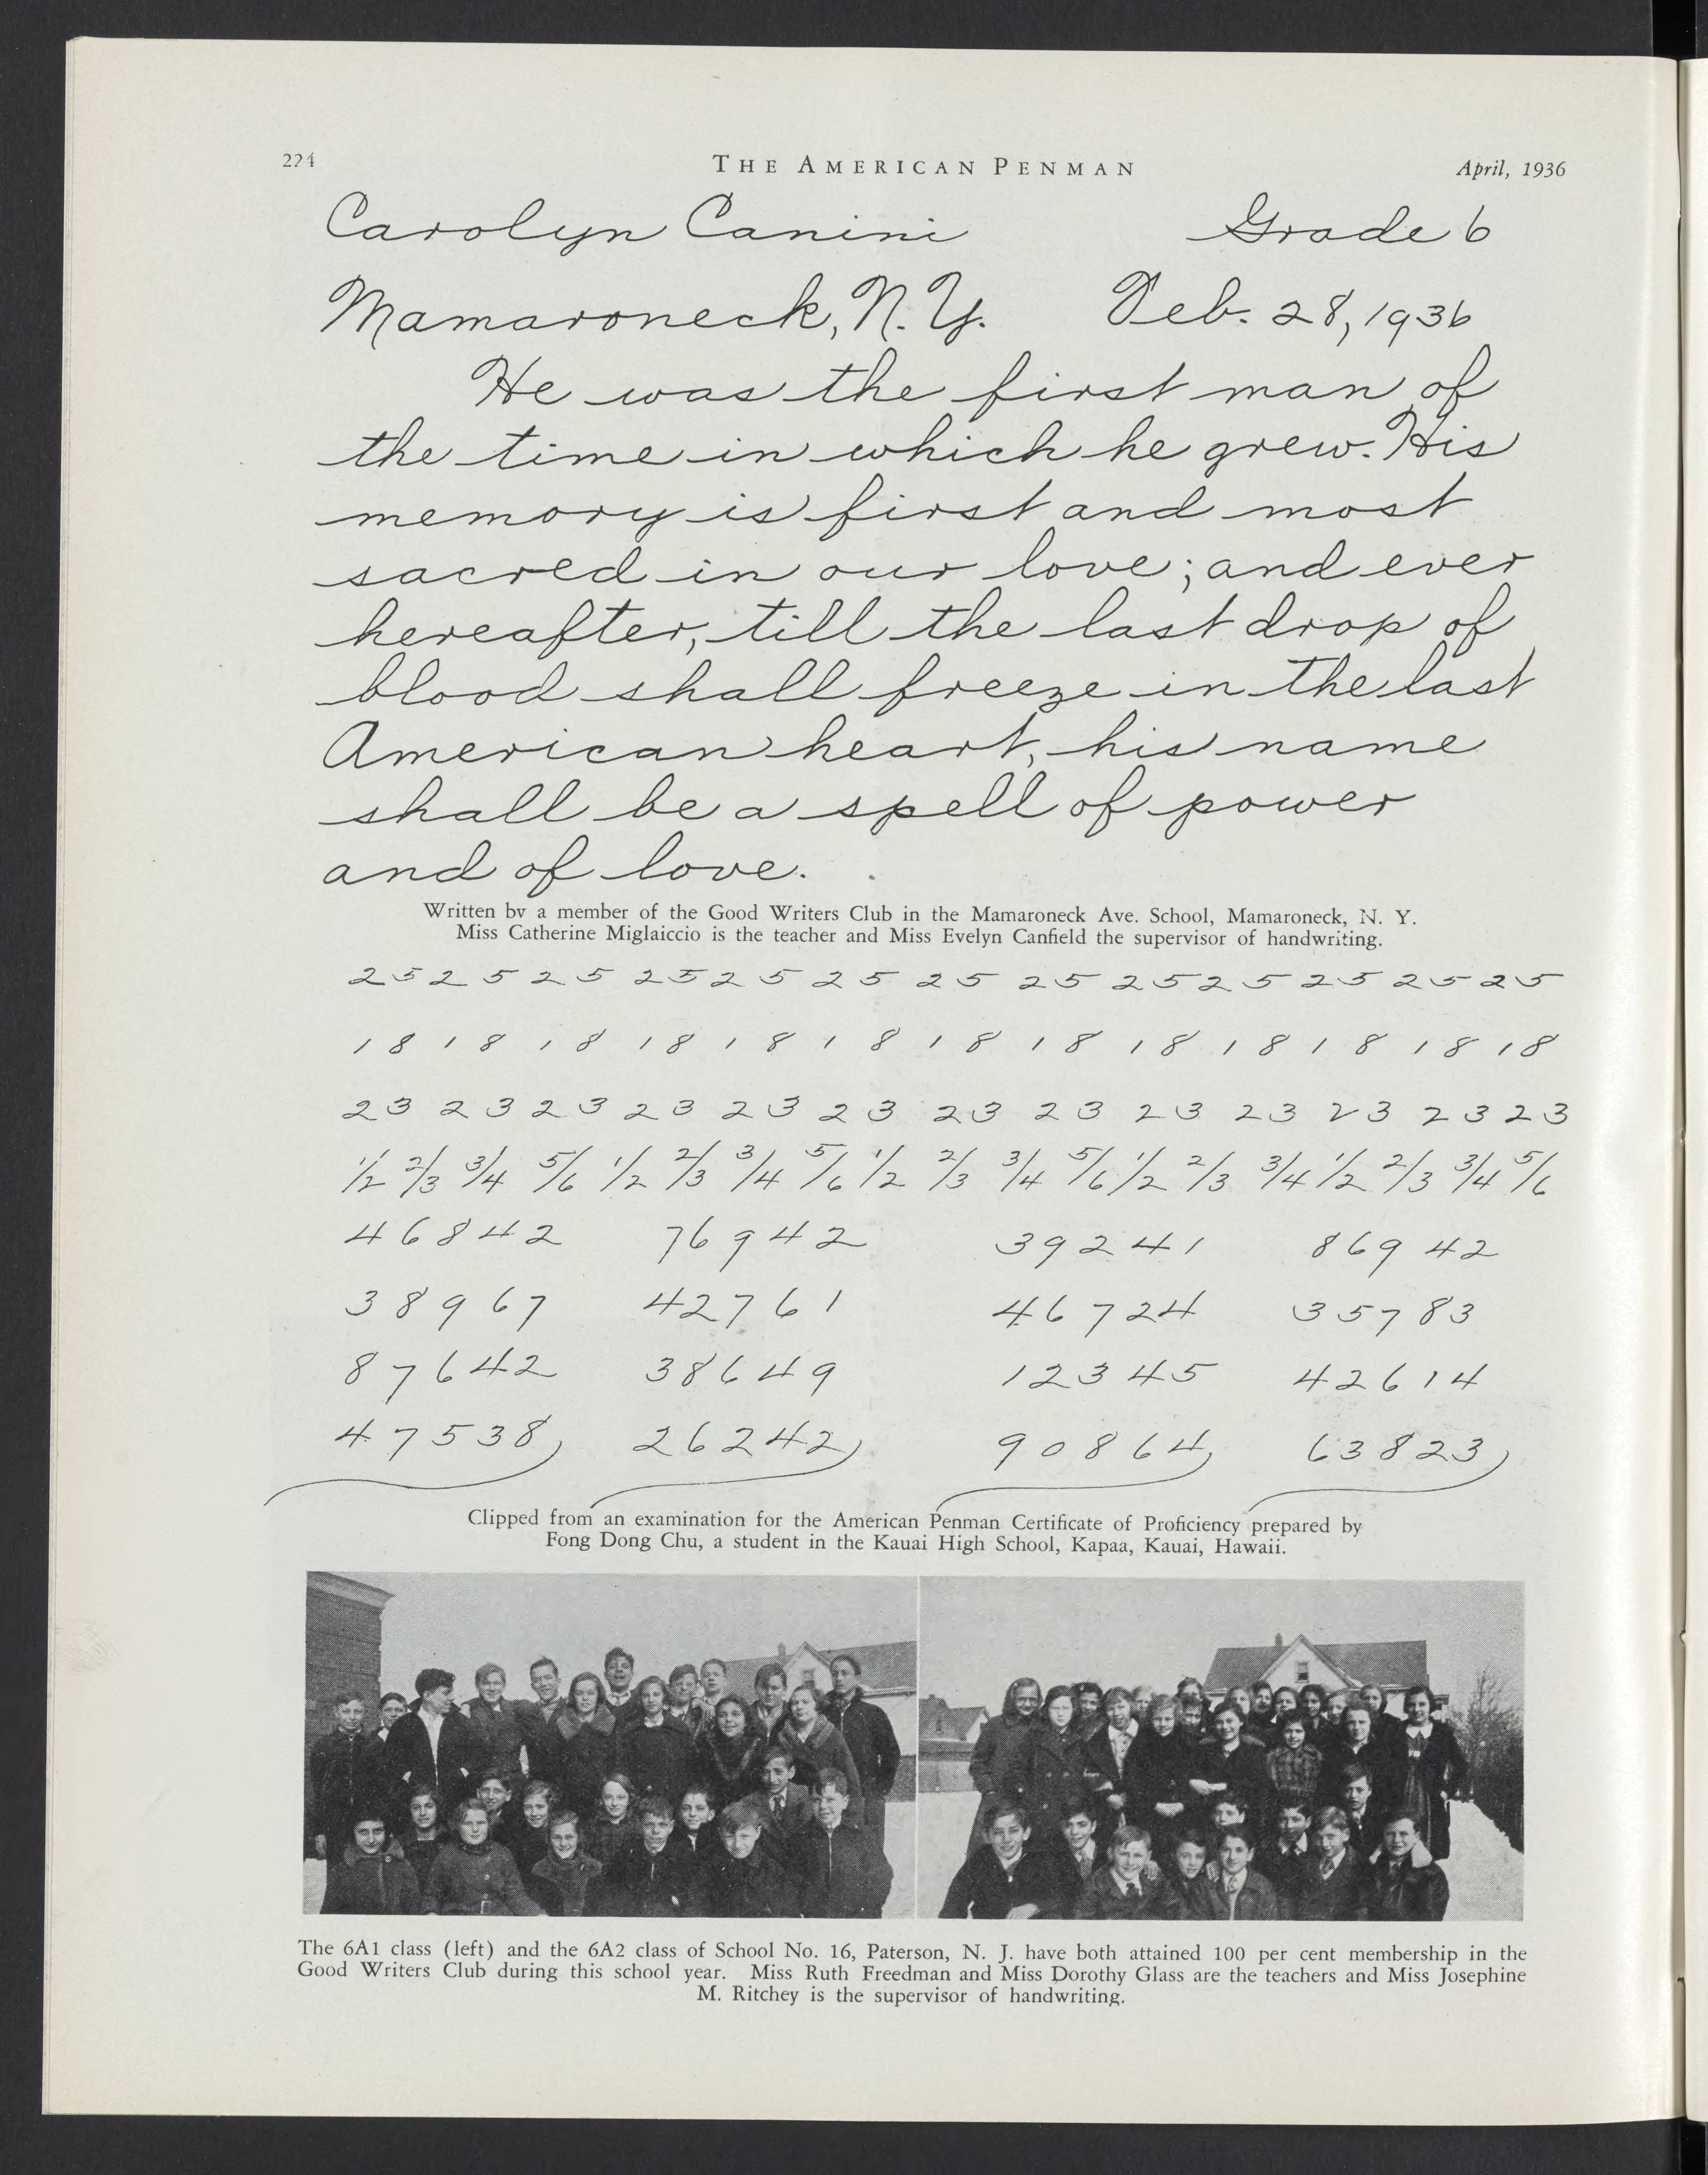 224 THE AMERICAN PENMAN April, 1936
Carolyn Canini Grade 6
Mamaroneck, N. Y. Feb. 28, 1936
He was the first man of
the time in which he grew. His
memory is first and most
sacred in our love; and ever
hereafter, till the last drop of
blood shall freeze in the last
American heart, his name
shall be a spell of power
and of love.
Written by a member of the Good Writers Club in the Mamaroneck Ave. School, Mamaroneck, N. Y.
Miss Catherine Miglaiccio is the teacher and Miss Evelyn Canfield the supervisor of handwriting.
25 25 25 25 25 25 25 25 25 25 25 25 25
18 18 18 18 18 18 18 18 18 18 18 18 18
23 23 23 23 23 23 23 23 23 23 23 23 23
1/2 2/3 3/4 5/6 1/2 2/3 3/4 5/6 1/2 2/3 3/4 5/6 1/2 2/3 3/4 1/2 2/3 3/4 5/6
46842 76942 39241 86942
38967 42761 46724 35783
87642 38649 12345 42614
47538 26242 90864 63823
Clipped from an examination for the American Penman Certificate of Proficiency prepared by
Fong Dong Chu, a student in the Kauai High School, Kapaa, Kauai, Hawaii.
The 6A1 class (left) and the 6A2 class of School No. 16, Paterson, N. J. have both attained 100 per cent membership in the
Good Writers Club during this school year. Miss Ruth Freedman and Miss Dorothy Glass are the teachers and Miss Josephine
M. Ritchey is the supervisor of handwriting.